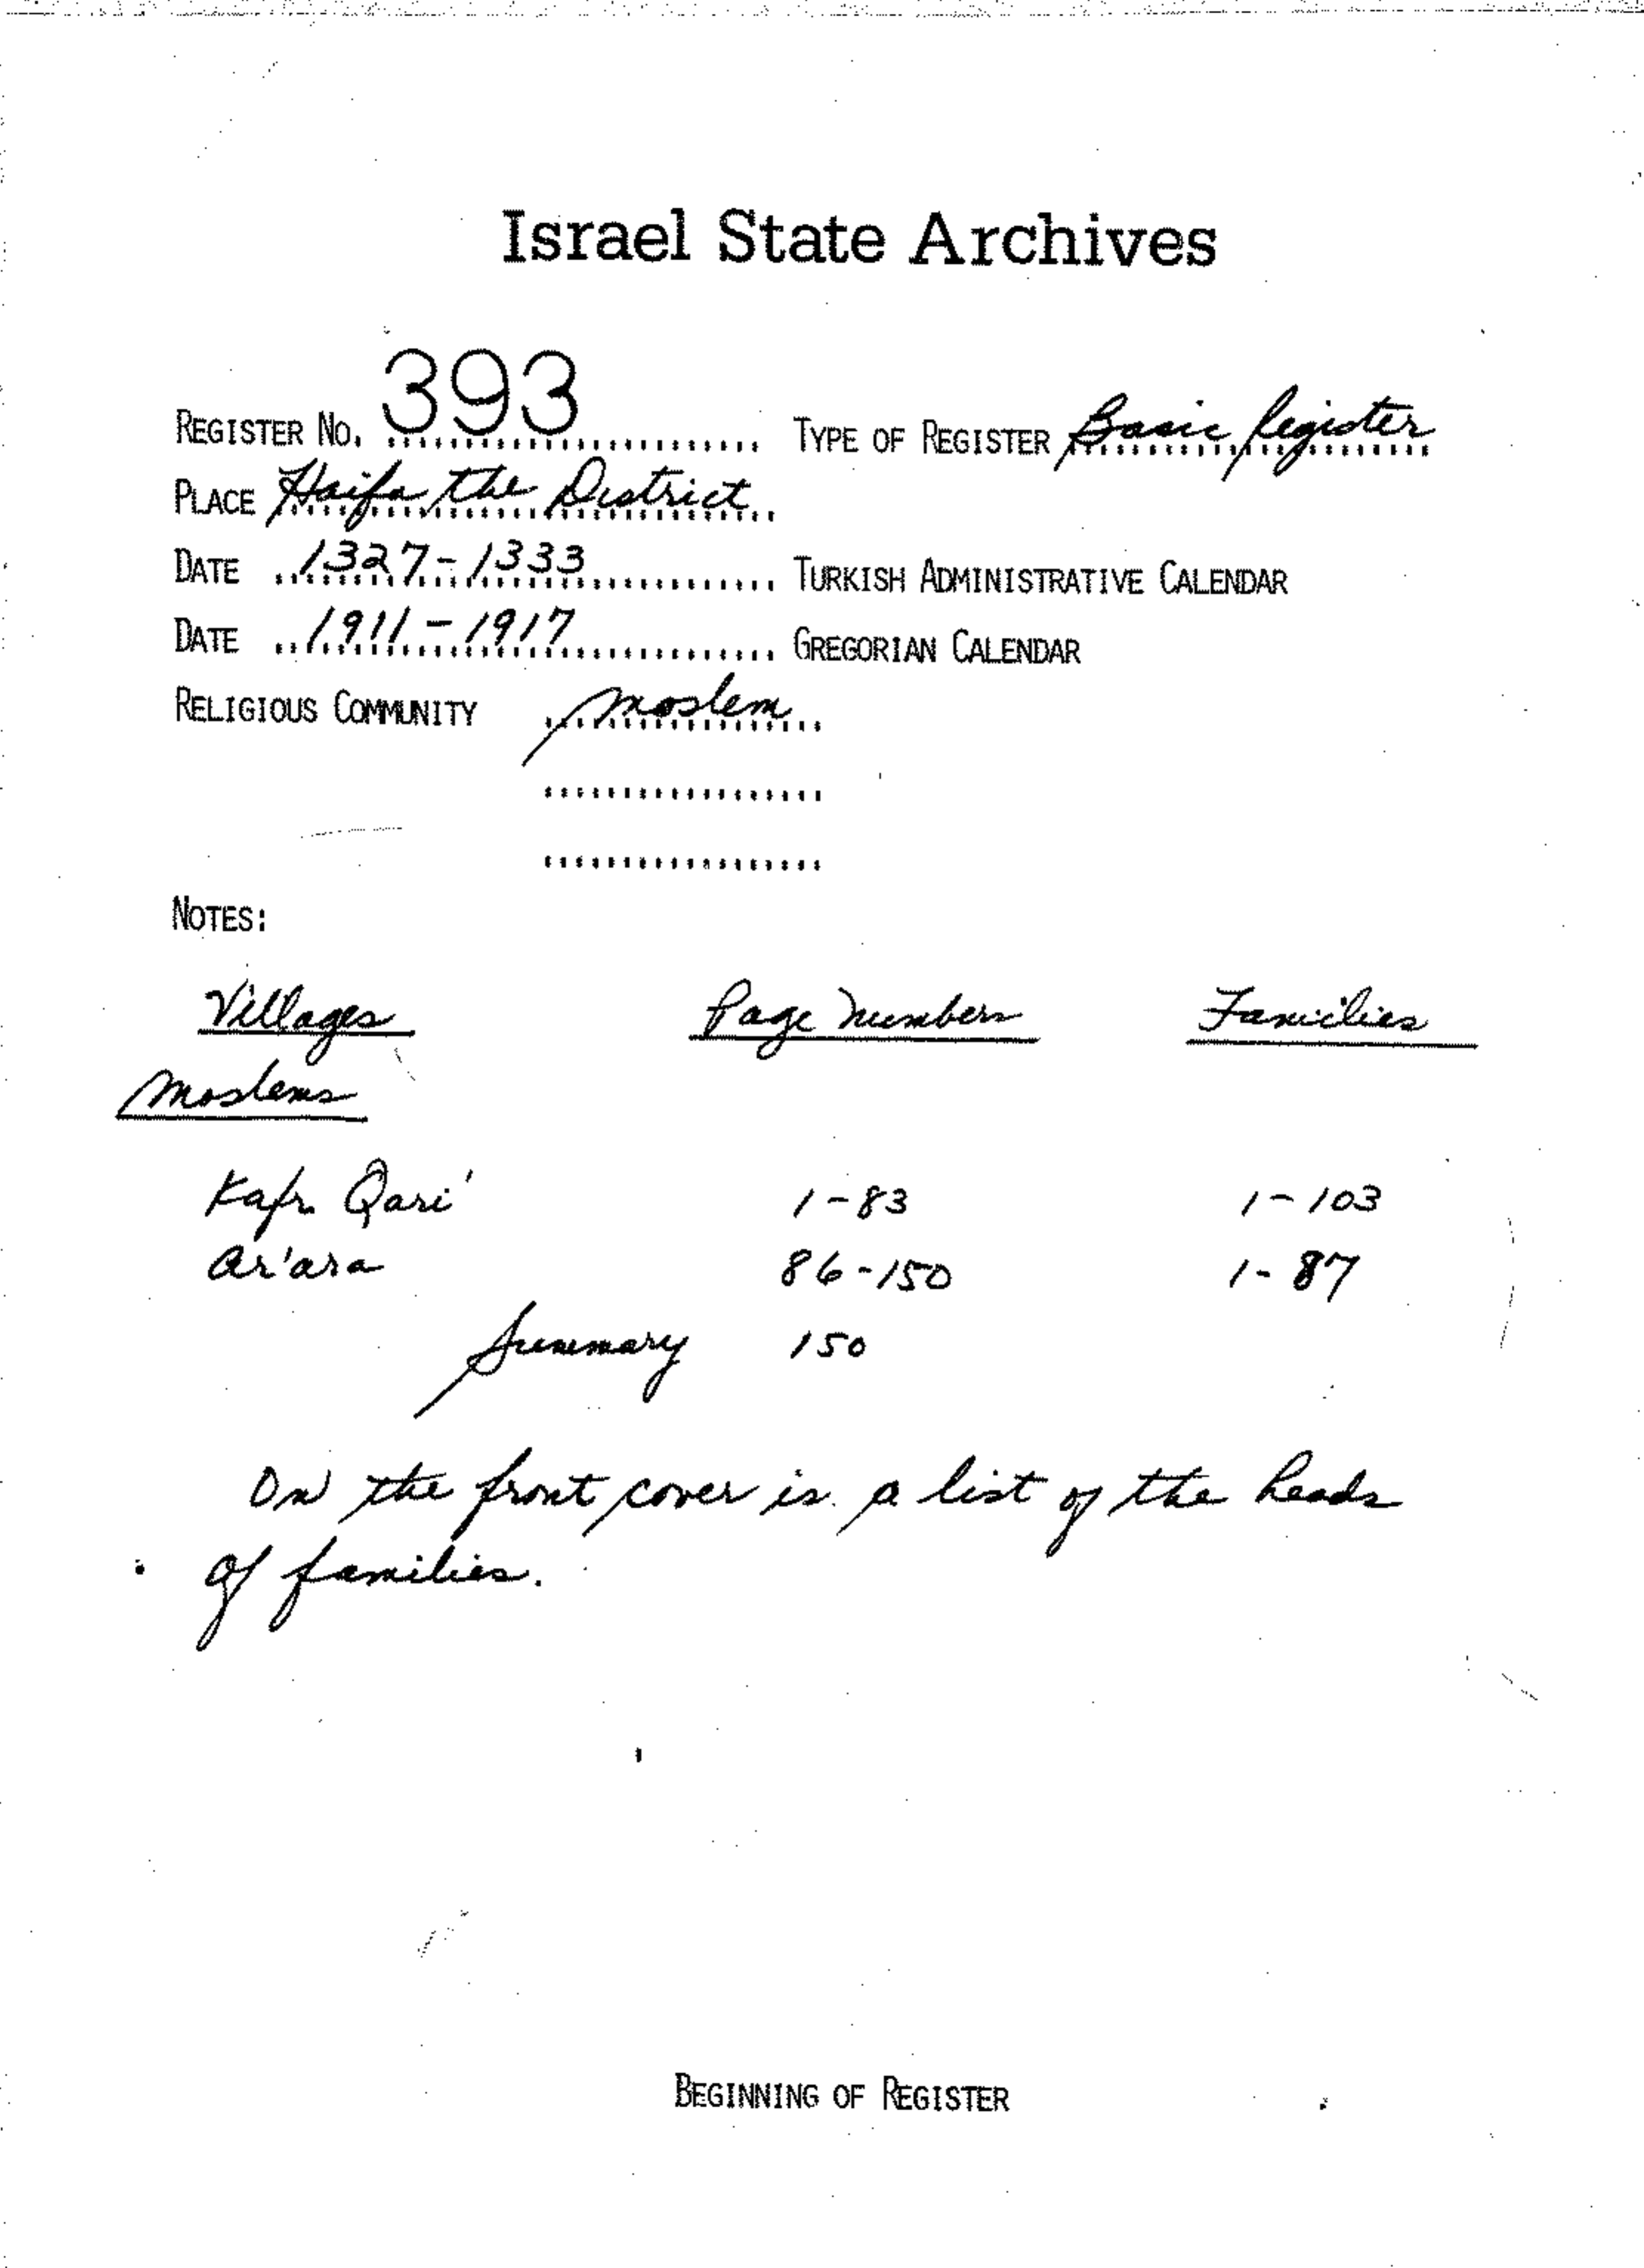 Israel State Archives
REGISTER NO. 393 TYPE OF REGISTER Basic Register
PLACE Haifa the District
DATE 1327-1333 TURKISH ADMINISTRATIVE CALENDAR
DATE 1911-1917 GREGORIAN CALENDAR
RELIGIOUS COMMUNITY Moslem
NOTES:
Villages Page Numbers Families
Moslems
Kafr Qari' 1-83 1-103
Ar'ara 86-150 1-87
Summary 150
On the front cover is a list of the heads
of families.
BEGINNING OF REGISTER